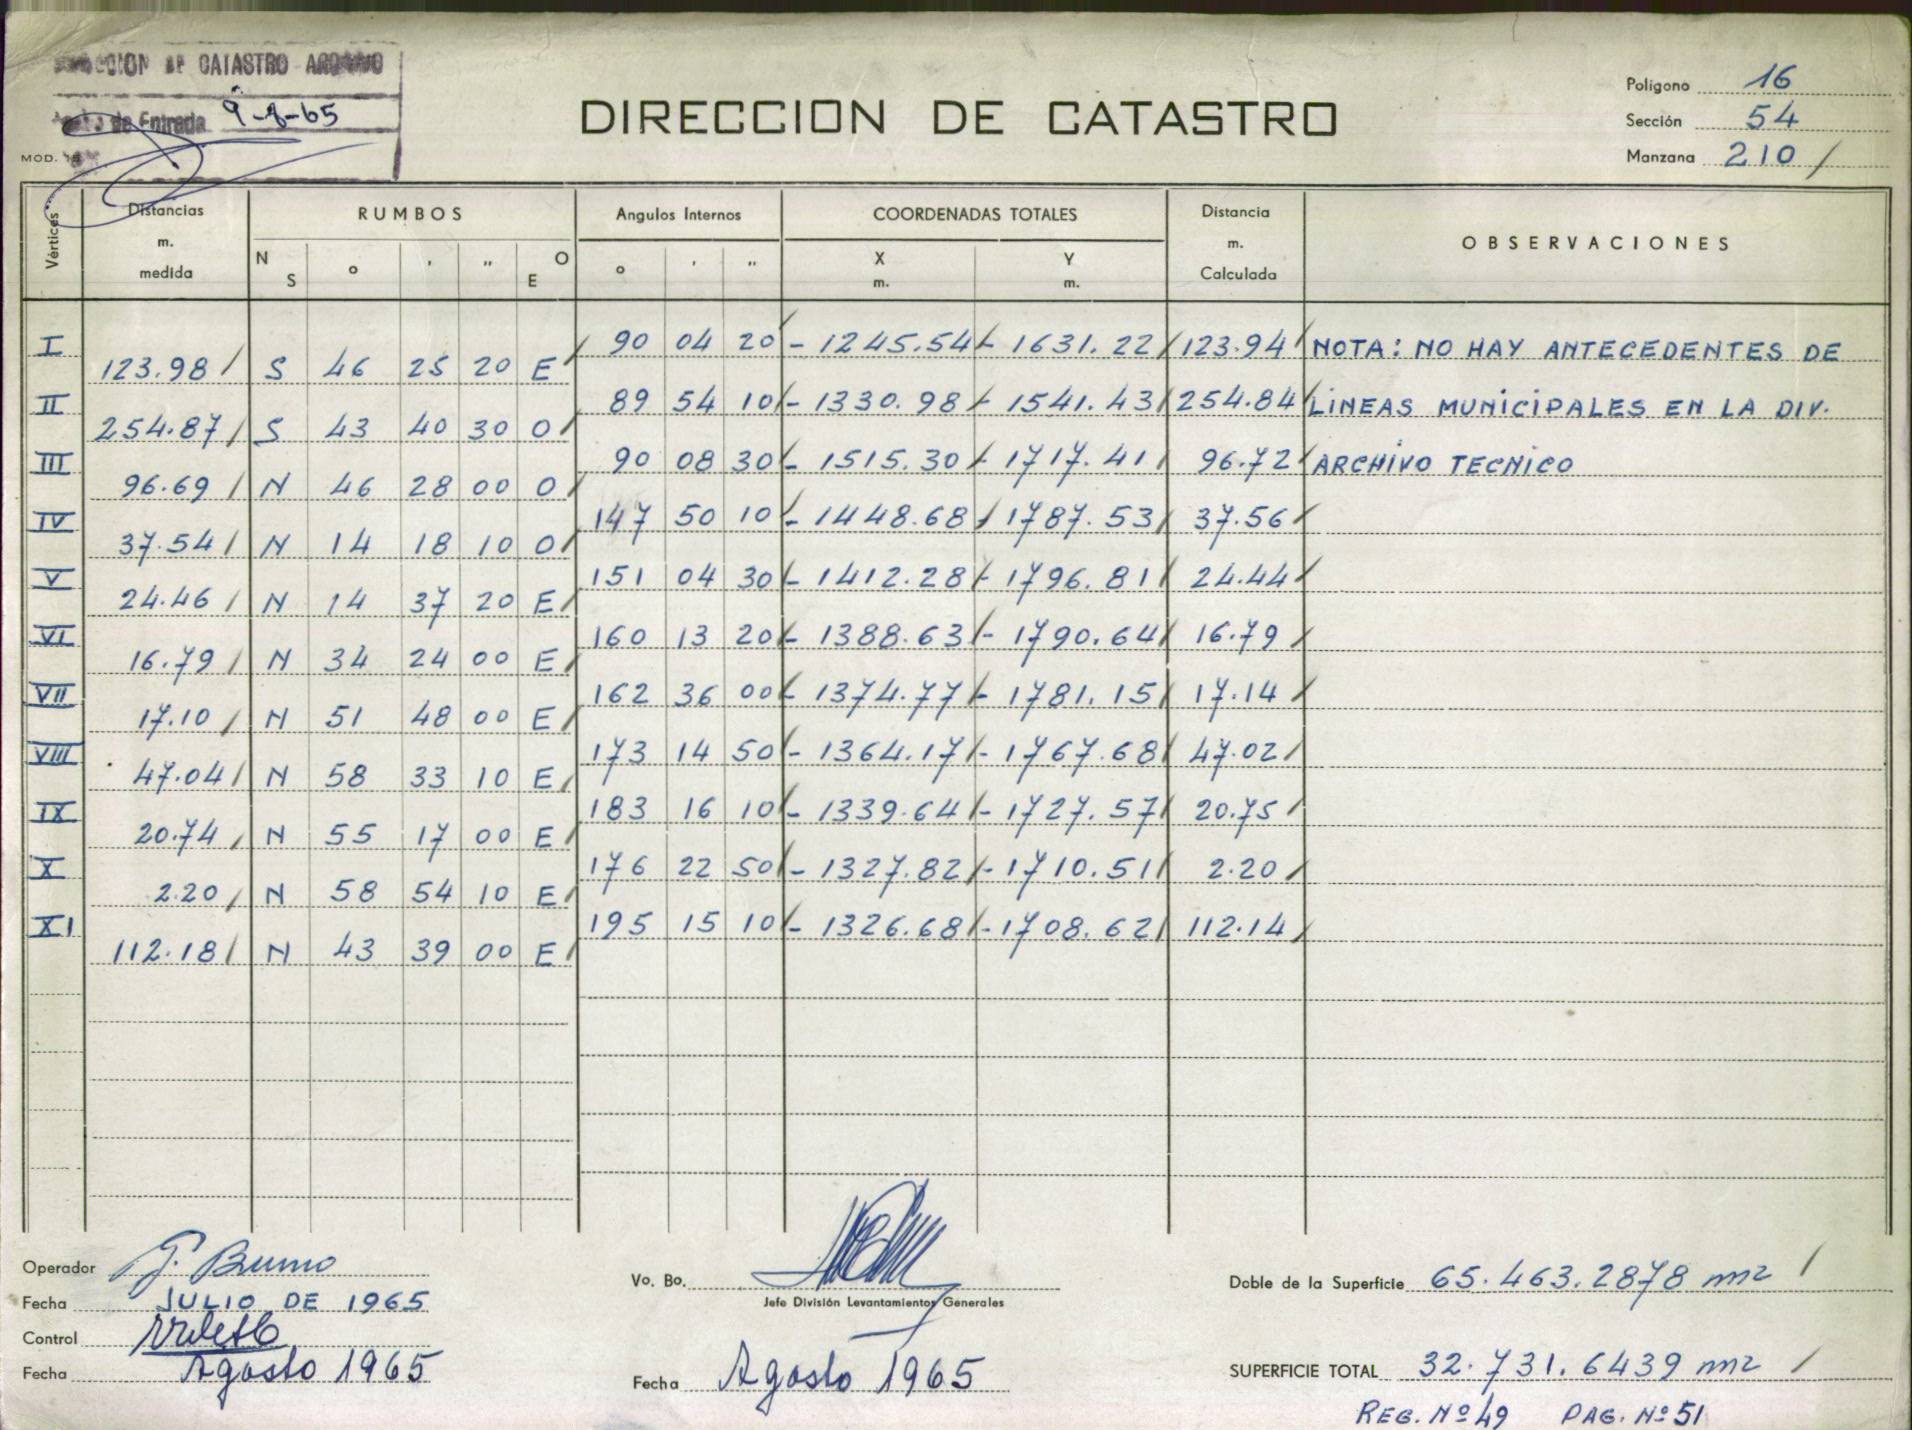 CATASTRO
de Entrada 9-8-65
MOD.
DIRECCION DE CATASTRO
Polígono 16
Sección 54
Manzana 210 /
Vértices Distancias m. medida RUMBOS Angulos Internos COORDENADAS TOTALES Distancia m. Calculada OBSERVACIONES
N S ° ' " O E ° ' " X m. Y m.
I 90 04 20 - 1245.54 - 1631.22 123.94 NOTA: NO HAY ANTECEDENTES DE
123.98 S 46 25 20 E
II 89 54 10 - 1330.98 - 1541.43 254.84 LINEAS MUNICIPALES EN LA DIV.
254.87 S 43 40 30 O
III 90 08 30 - 1515.30 - 1717.41 96.72 ARCHIVO TECNICO
96.69 N 46 28 00 O
IV 147 50 10 - 1448.68 - 1787.53 37.56
37.54 N 14 18 10 O
V 151 04 30 - 1412.28 - 1796.81 24.44
24.46 N 14 37 20 E
VI 160 13 20 - 1388.63 - 1790.64 16.79
16.79 N 34 24 00 E
VII 162 36 00 - 1374.77 - 1781.15 17.14
17.10 N 51 48 00 E
VIII 173 14 50 - 1364.17 - 1767.68 47.02
47.04 N 58 33 10 E
IX 183 16 10 - 1339.64 - 1727.57 20.75
20.74 N 55 17 00 E
X 176 22 50 - 1327.82 - 1710.51 2.20
2.20 N 58 54 10 E
XI 195 15 10 - 1326.68 - 1708.62 112.14
112.18 N 43 39 00 E
Operador G. Bruno
Fecha JULIO DE 1965
Control
Fecha Agosto 1965
Vo. Bo.
Jefe División Levantamientos Generales
Fecha Agosto 1965
Doble de la Superficie 65.463.2878 m2 /
SUPERFICIE TOTAL 32.731.6439 m2 /
REG. Nº 49 PAG. Nº 51